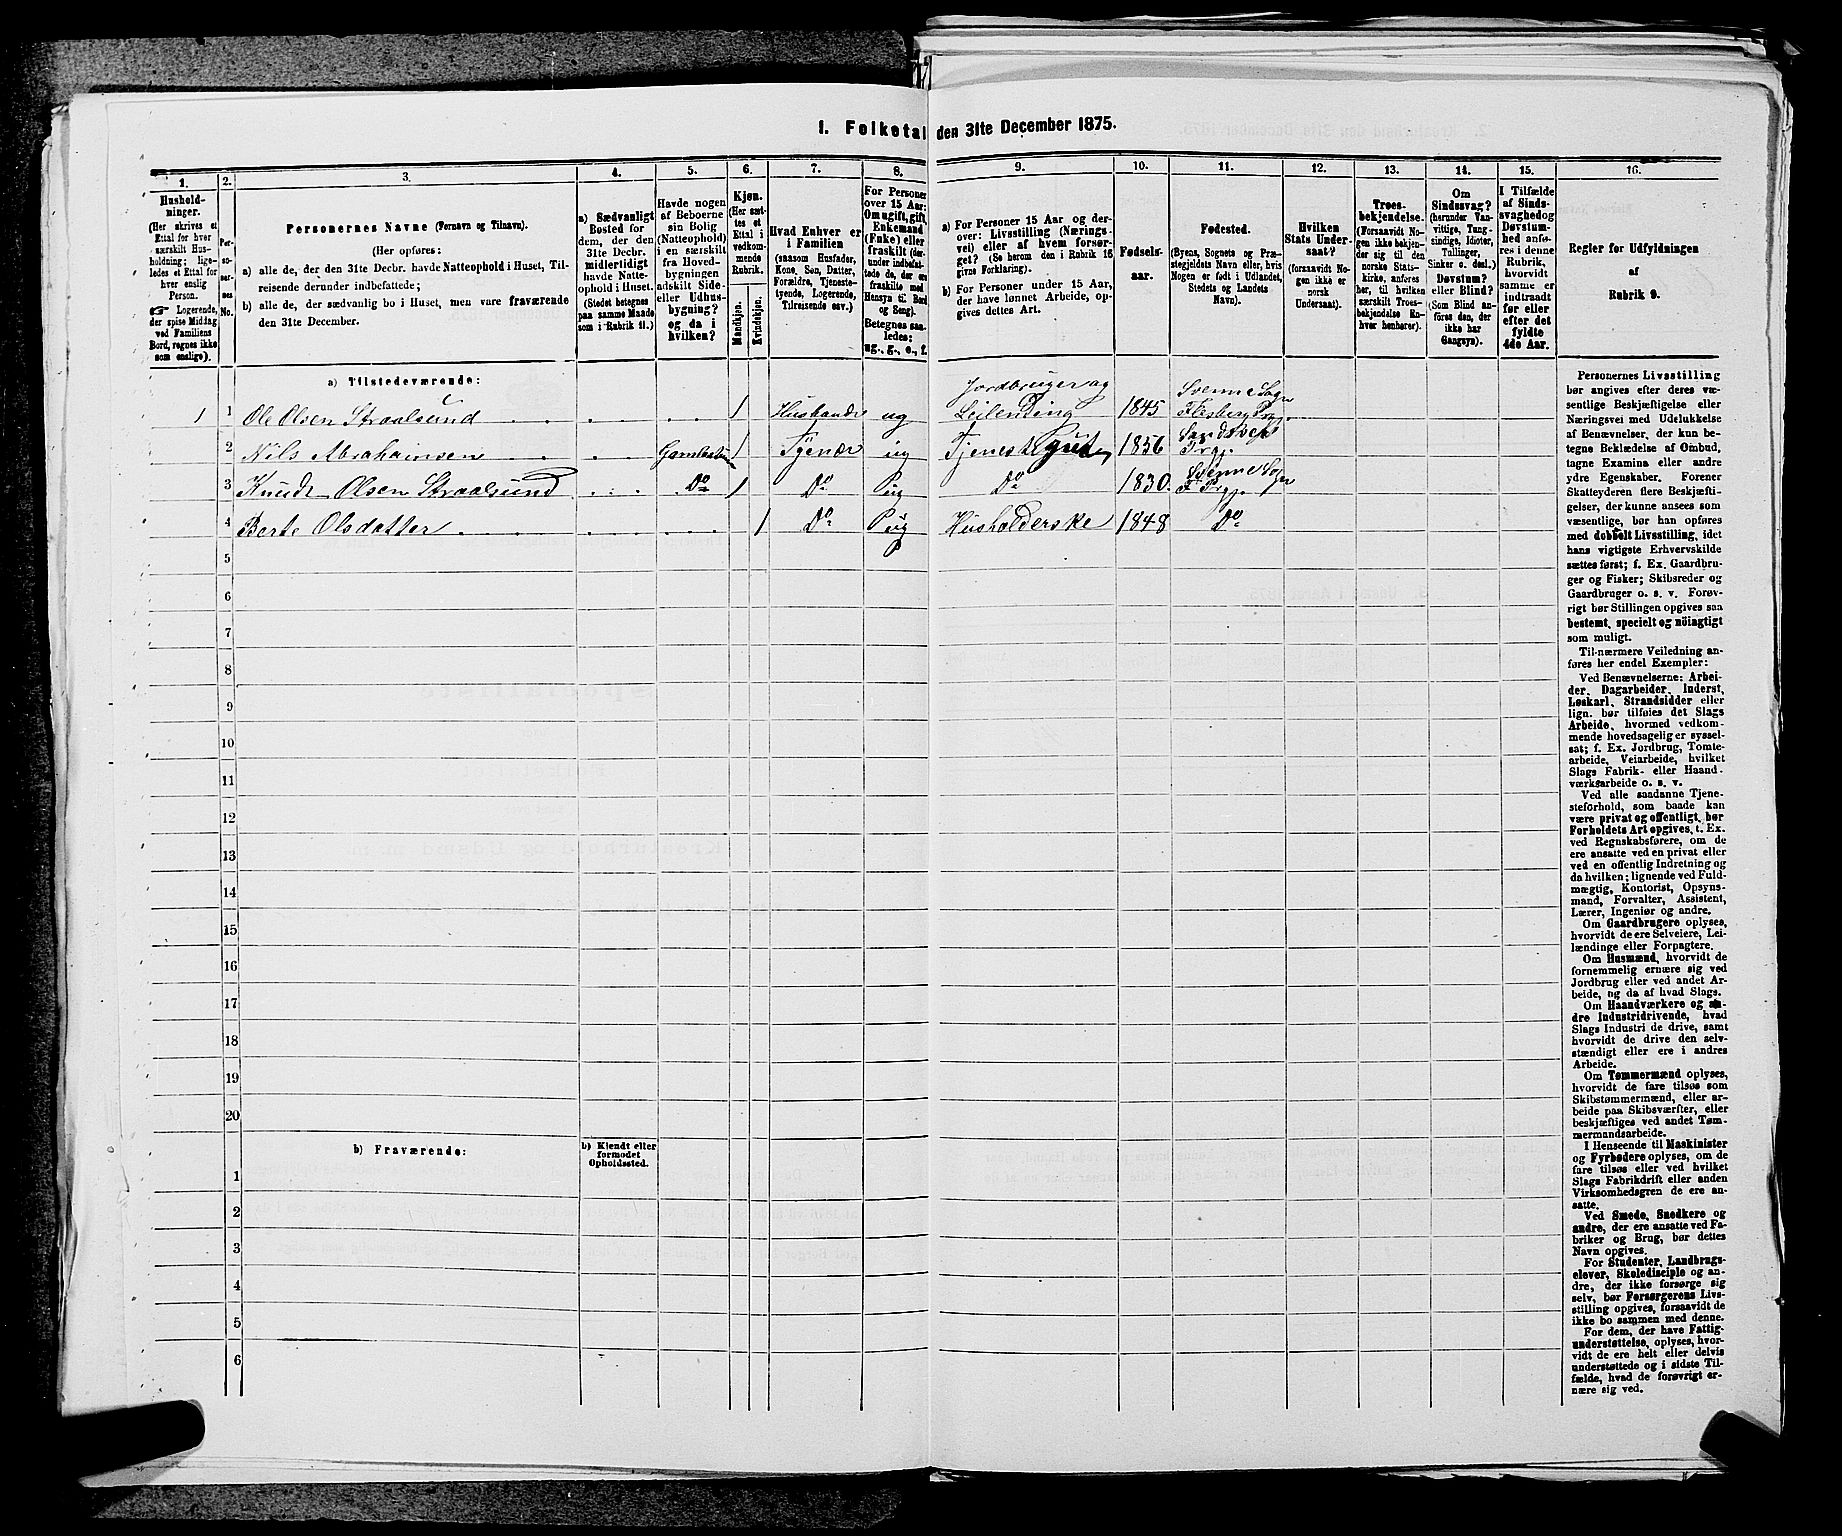 I. Folketal den 31te December 1875.
1.
Hushold-
ninger.
(Her skrives et
Ettal for hver
særskilt Hus-
holdning; lige-
ledes et Ettal for
hver enslig
Person.
☞ Logerende,
der spise Middag
ved Familiens
Bord, regnes ikke
som enslige).
2.
Per-
so-
ner-
nes
No.
3.
Personernes Navne (Fornavn og Tilnavn).
(Her opføres:
a) alle de, der den 31te Decbr. havde Natteophold i Huset, Til-
reisende derunder indbefattede;
b) alle de, der sædvanlig bo i Huset, men vare fraværende
den 31te December.
4.
a) Sædvanligt
Bosted for
dem, der den
31te Decbr.
midlertidigt
havde Natte-
ophold i Huset.
(Stedet betegnes
paa samme Maade
som i Rubrik 11.)
5.
Havde nogen
af Beboerne
sin Bolig
(Natteophold)
i en særskilt
fra Hoved-
bygningen
adskilt Side-
eller Udhus-
bygning?
og da i
hvilken?
6.
Kjøn.
(Her sæt-
tes et
Ettal i
vedkom-
mende
Rubrik.
Mandkjøn.
Kvindekjøn.
7.
Hvad Enhver er
i Familien
(saasom Husfader,
Kone, Søn, Datter,
Forældre, Tjeneste-
tyende, Logerende,
Tilreisende osv.)
8.
For Personer
over 15 Aar:
Om ugift, gift,
Enkemand
(Enke) eller
fraskilt (der-
under indbefat-
tede de, der ere
fraskilte med
Hensyn til Bord
og Seng).
Betegnes saa-
ledes:
ug., g., e., f.
9.
a) For Personer 15 Aar og der-
over: Livsstilling (Nærings-
vei) eller af hvem forsør-
get? (Se herom den i Rubrik 16
givne Forklaring).
b) For Personer under 15 Aar,
der have lønnet Arbeide, op-
gives dettes Art.
10.
Fødsels-
aar.
11.
Fødested.
(Byens, Sognets og Præ-
stegjeldets Navn eller, hvis
Nogen er født i Udlandet,
Stedets og Landets
Navn).
12.
Hvilken
Stats Under-
saat?
(forsaavidt No-
gen ikke er
norsk
Undersaat).
13.
Troes-
bekjendelse.
(Forsaavidt No-
gen ikke bekjen-
der sig til den
norske Stats-
kirke, anføres
her, til hvilken
særskilt Troes-
bekjendelse En-
hver henhører).
14.
Om
Sindssvag?
(herunder Van-
vittige, Tung-
sindige, Idioter,
Tullinger,
Sinker o. desl.)
Døvstum?
eller Blind?
(Som Blind an-
føres den, der
ikke har
Gangsyn).
15.
I Tilfælde
af Sinds-
svaghed og
Døvstum-
hed anfø-
res i denne
Rubrik,
hvorvidt
samme er
indtraadt
før eller
efter det
fyldte
4de Aar.
16.
Regler for Udfyldningen
af
Rubrik 9.
a) Tilstedeværende:
1 1 Ole Olsen Straalsund 1 Husbande ug Jordbruger og Leilending 1845 Svenne Sogn Flesberg Prgj.
2 Nils Abrahamsen 1 Tjener ug Tjenestegut 1856 Sandsvær Prgj.
3 Knudt Olsen Straalsund Do 1 Do ug Do 1830. Svenne Sogn F. Prgj.
4 Berte Olsdatter 1 Do ug Husholderske 1848 Do
5
6
7
8
9
10
11
12
13
14
15
16
17
18
19
20
b) Fraværende:
b) Kjendt eller
formodet
Opholdssted.
1
2
3
4
5
6
Personernes Livsstilling
bør angives efter deres væ-
sentlige Beskjæftigelse eller
Næringsvei med Udelukkelse
af Benævnelser, der kun be-
tegne Beklædelse af Ombud,
tagne Examina eller andre
ydre Egenskaber. Forener
Skatteyderen flere Beskjæfti-
gelser, der kunne ansees som
væsentlige, bør han opføres
med dobbelt Livsstilling, idet
hans vigtigste Erhvervskilde
sættes først; f. Ex. Gaardbru-
ger og Fisker; Skibsreder og
Gaardbruger o. s. v. Forøv-
rigt bør Stillingen opgives saa
bestemt, specielt og nöiagtigt
som muligt.
Til nærmere Veiledning an-
føres her endel Exempler:
Ved Benævnelserne: Arbei-
der, Dagarbeider, Inderst,
Løskarl, Strandsidder eller
lign. bør tilføies det Slags
Arbeide, hvormed vedkom-
mende hovedsagelig er syssel-
sat; f. Ex. Jordbrug, Tomte-
arbeide, Veiarbeide, hvilket
Slags Fabrik- eller Haand-
værksarbeide o. s. v.
Ved alle saadanne Tjene-
steforhold, som baade kan
være privat og offentligt, bør
Forholdets Art opgives, t. Ex.
ved Regnskabsførere, om de
ere ansatte ved en privat eller
ved en offentlig Indretning og
da hvilken; lignende ved Fuld-
mægtig, Kontorist, Opsyns-
mand, Forvalter, Assistent,
Lærer, Ingeniør og andre.
Om Gaardbrugere oplyses,
hvorvidt de ere Selveiere, Lei-
lændinge eller Forpagtere.
Om Husmænd, hvorvidt de
fornemmelig ernære sig ved
Jordbrug eller ved andet Ar-
beide, og da af hvad Slags.
Om Haandværkere og an-
dre Industridrivende, hvad
Slags Industri de drive, samt
hvorvidt de drive den selv-
stændigt eller ere i andres
Arbeide.
Om Tømmermænd oplyses,
hvorvidt de fare tilsøs som
Skibstømmermænd, eller ar-
beide paa Skibsværfter, eller
beskjæftiges ved andet Tøm-
mermandsarbeide.
I Henseende til Maskinister
og Fyrbødere oplyses, om de
fare tilsøs eller ved hvilket
Slags Fabrikdrift eller anden
Virksomhedsgren de ere an-
satte.
Ved Smede, Snedkere og
andre, der ere ansatte ved Fa-
briker og Brug, bør dettes
Navn opgives.
For Studenter, Landbrugs-
elever, Skoledisciple og an-
dre, der ikke forsørge sig
selv, bør Forsørgerens Livs-
stilling opgives, forsaavidt de
ikke bo sammen med denne.
For dem, der have Fattig-
understøttelse, oplyses, hvor-
vidt de ere helt eller delvis
understøttede og i sidste Til-
fælde, hvad de forøvrigt er-
nære sig ved.